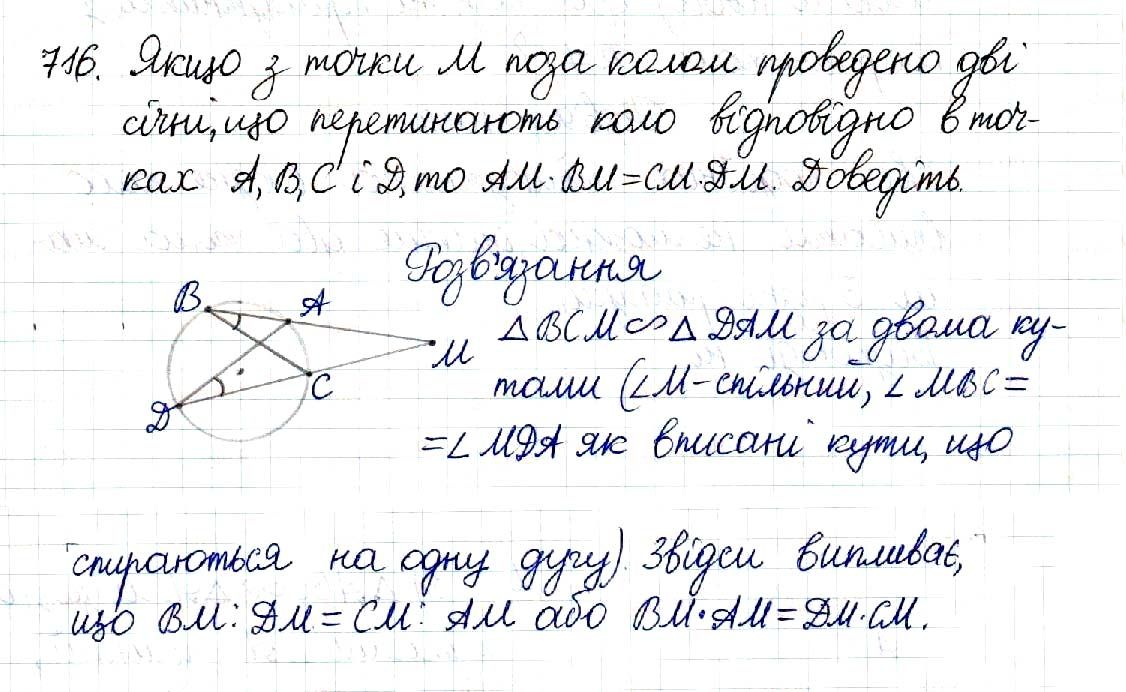 716. Якщо з точки М поза колом проведено дві
січні, що перетинають коло відповідно в точ-
ках А, В, С і D, то АМ·ВМ=СМ·DМ. Доведіть.
Розв'язання
В
А
М
С
D
△ВСМ∽△DАМ за двома ку-
тами (∠М-спільний, ∠МВС=
=∠МDА як вписані кути, що
спираються на одну дугу). Звідси випливає,
що ВМ:DМ=СМ:АМ або ВМ·АМ=DМ·СМ.